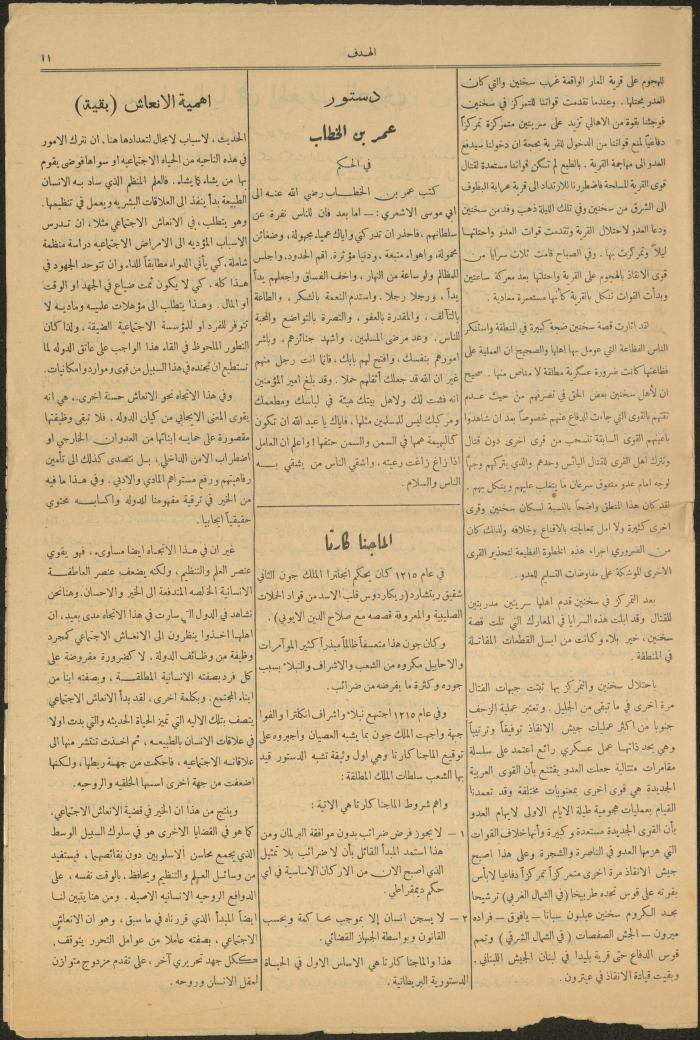 الهدف
١١
للهجوم على قرية المغار الواقعة غرب سخنين والتي كان
العدو يحتلها . وعندما تقدمت قواتنا للتمركز في سخنين
فوجئنا بقوة من الاهالي تزيد على سريتين متمركزة تمركزاً
دفاعياً لمنع قواتنا من الدخول للقرية بحجة ان دخولنا سيدفع
العدو الى مهاجمة القرية . بالطبع لم تكن قواتنا مستعدة لقتال
قوى القرية المسلحة فاضطررنا للارتداد الى قرية عرابة البطوف
الى الشرق من سخنين وفي تلك الليلة ذهب وفد من سخنين
ودعا العدو لاحتلال القرية وتقدمت قوات العدو واحتلتها
ليلاً وتمركزت بها . وفي الصباح قامت ثلاث سرايا من
قوى الانقاذ بالهجوم على القرية واحتلتها بعد معركة ساعتين
وبدأت القوات تنكل بالقرية كأنها مستعمرة معادية .
لقد اثارت قصة سخنين ضجة كبيرة في المنطقة واستنكر
الناس الفظاعة التي عومل بها اهلها والصحيح ان العملية على
فظاعتها كانت ضرورة عسكرية مطلقة لا مناص منها . صحيح
ان لأهل سخنين بعض الحق في تصرفهم من حيث عدم
ثقتهم بالقوى التي جاءت للدفاع عنهم خصوصاً بعد ان شاهدوا
بأعينهم القوى السابقة تنسحب من قرى اخرى دون قتال
وتترك أهل القرى للقتال اليائس وحدهم والذي يتركهم وجهاً
لوجه امام عدو متفوق سرعان ما يتغلب عليهم وينكل بهم .
لقد كان هذا المنطق واضحاً بالنسبة لسكان سخنين وقرى
اخرى كثيرة ولا امل بمعالجته بالاقناع وخلافه ولذلك كان
من الضروري اجراء هذه الخطوة الفظيعة لتحذير القرى
الاخرى الموشكة على مفاوضات التسليم للعدو .
بعد التمركز في سخنين قدم اهلها سريتين مدربتين
للقتال وقد ابلت هذه السرايا في المعارك التي تلت قصة
سخنين ، خير بلاء وكانت من ابسل القطعات المقاتلة
في المنطقة .
باحتلال سخنين والتمركز بها ثبتت جبهات القتال
مرة اخرى في ما تبقى من الجليل . وتعتبر عملية الزحف
جنوبا من اكثر عمليات جيش الانقاذ توفيقاً وترتيباً
وهي بحد ذاتها عمل عسكري رائع اعتمد على سلسلة
مغامرات متتالية جعلت العدو يقتنع بأن القوى العربية
الجديدة هي قوى اخرى بمعنويات مختلفة وقد تعمدنا
القيام بعمليات هجومية طيلة الايام الاولى لايهام العدو
بأن القوى الجديدة مستعدة وكبيرة وأنها خلاف القوات
التي هزمها العدو في الناصرة والشجرة وعلى هذا اصبح
جيش الانقاذ مرة اخرى متمركزاً تمركزاً دفاعيا لابأس
بقوته على قوس تحده طربيخا (في الشمال الغربي) ترشيحا
مجد الكروم سخنين عيلبون سبانا – ياقوق – فراده
ميرون – الجش الصفصاف ( في الشمال الشرقي ) وتمم
قوس الدفاع حتى قرية بليدا في لبنان الجيش اللبناني .
وبقيت قيادة الانقاذ في عيترون .
دستور
عمر بن الخطاب
في الحكم
كتب عمر بن الخطاب رضي الله عنه الى
ابي موسى الاشعري : – اما بعد فان للناس نفرة عن
سلطانهم ، فاحذر ان تدركني واياك عمياء مجهولة ، وضغائن
محمولة ، واهواء متبعة ، ودنيا مؤثرة . اقم الحدود ، واجلس
للمظالم ولو ساعة من النهار ، واخف الفساق واجعلهم يداً
يداً ، ورجلا رجلا . واستدم النعمة بالشكر ، والطاعة
بالتآلف ، والمقدرة بالعفو ، والنصرة بالتواضع والمحبة
للناس . وعد مرضى المسلمين ، واشهد جنائزهم ، وباشر
امورهم بنفسك ، وافتح لهم بابك ، فانما انت رجل منهم
غير ان الله قد جعلك أثقلهم حملا . وقد بلغ امير المؤمنين
انه فشت لك ولاهل بيتك هيئة في لباسك ومطعمك
ومركبك ليس للمسلمين مثلها ، فاياك يا عبد الله ان تكون
كالبهيمة همها في السمن والسمن حتفها ! واعلم ان العامل
اذا زاغ زاغت رعيته ، واشقى الناس من يشقى به
الناس والسلام .
الماجنا كارتا
في عام ١٢١٥ كان يحكم انجلترا الملك جون الثاني
شقيق ريتشارد ( ريكاردوس قلب الاسد من قواد الحملات
الصليبية والمعروفة قصصه مع صلاح الدين الايوبي ) .
وكان جون هذا متعسفاً ظالماً مبذراً كثير المؤامرات
والاحابيل مكروه من الشعب والاشراف والنبلاء بسبب
جوره وكثرة ما يفرضه من ضرائب .
وفي عام ١٢١٥ اجتمع نبلاء واشراف انكلترا والفوا
جبهة واجهت الملك جون بما يشبه العصيان واجبروه على
توقيع الماجنا كارتا وهي اول وثيقة تشبه الدستور قيد
بها الشعب سلطات الملك المطلقة :
واهم شروط الماجنا كارتا هي الاتية :
١ – لا يجوز فرض ضرائب بدون موافقة البرلمان ومن
هذا استمد المبدأ القائل بأن لا ضرائب بلا تمثيل
الذي اصبح الان من الاركان الاساسية في اي
حكم ديمقراطي .
٢ – لا يسجن انسان إلا بموجب محاكمة وبحسب
القانون وبواسطة الجهاز القضائي .
هذا والماجنا كارتا هي الاساس الاول في الحياة
الدستورية البريطانية .
اهمية الانعاش ( بقية )
الحديث ، لاسباب لا مجال لتعدادها هنا . ان نترك الامور
في هذه الناحيه من الحياه الاجتماعيه او سواها فوضى يقوم
بها من يشاء كما يشاء . فالعلم المنظم الذي ساد به الانسان
الطبيعة بدأ ينفذ الى العلاقات البشريه ويعمل في تنظيمها .
وهو يتطلب ، في الانعاش الاجتماعي مثلا ، ان تدرس
الاسباب المؤديه الى الامراض الاجتماعيه دراسة منظمة
شاملة ، كي يأتي الدواء مطابقاً للداء وان تتوحد الجهود في
هذا كله . كي لا يكون ثمت ضياع في الجهد او الوقت
او المال . وهذا يتطلب الى مؤهلات علميه وماديه لا
تتوفر للفرد او للمؤسسة الاجتماعية الضيقة ، ولذا كان
التطور الملحوظ في القاء هذا الواجب على عاتق الدوله لما
تستطيع ان تجنده في هذا السبيل من قوى وموارد وامكانيات .
وفي هذا الاتجاه نحو الانعاش حسنة اخرى ، هي انه
يقوي المعنى الايجابي من كيان الدوله . فلا تبقى وظيفتها
مقصورة على حمايه ابنائها من العدوان الخارجي او
اضطراب الامن الداخلي ، بل تتصدى كذلك الى تأمين
رفاهيتهم ورفع مستواهم المادي والادبي . وفي هذا ما فيه
من الخير في ترقية مفهومنا للدوله واكسابه محتوى
حقيقياً ايجابيا .
غير ان في هذا الاتجاه ايضا مساوىء . فهو يقوي
عنصر العلم والتنظيم ، ولكنه يضعف عنصر العاطفة
الانسانية الخالصه المندفعة الى الخير والاحسان . وها نحن
نشاهد في الدول التي سارت في هذا الاتجاه مدى بعيد ، ان
اهلها اخذوا ينظرون الى الانعاش الاجتماعي كمجرد
وظيفة من وظائف الدولة . لا كضرورة مفروضة على
كل فرد بصفته الانسانية المطلقة ، وبصفته ابنا من
ابناء المجتمع . وبكلمة اخرى ، لقد بدأ الانعاش الاجتماعي
يتصف بتلك الاليه التي تميز الحياة الحديثه والتي بدت اولا
في علاقات الانسان بالطبيعه ، ثم اخذت تنتشر منها الى
علاقاته الاجتماعيه ، فاحكمت من جهة ربطها ، ولكنها
اضعفت من جهة اخرى اسسها الخلقيه والروحيه .
وينتج من هذا ان الخير في قضية الانعاش الاجتماعي ،
كما هو في القضايا الاخرى هو في سلوك السبيل الوسط
الذي يجمع محاسن الاسلوبين دون نقائصهما ، فيستفيد
من وسائل العلم والتنظيم ويحافظ ، بالوقت نفسه ، على
الدوافع الروحيه الانسانيه الاصيله . ومن هنا يتبين لنا
ايضاً المبدأ الذي قررناه في ما سبق ، وهو ان الانعاش
الاجتماعي ، بصفته عاملا من عوامل التحرر يتوقف .
ككل جهد تحريري آخر ، على تقدم مزدوج متوازن
لعقل الانسان وروحه .